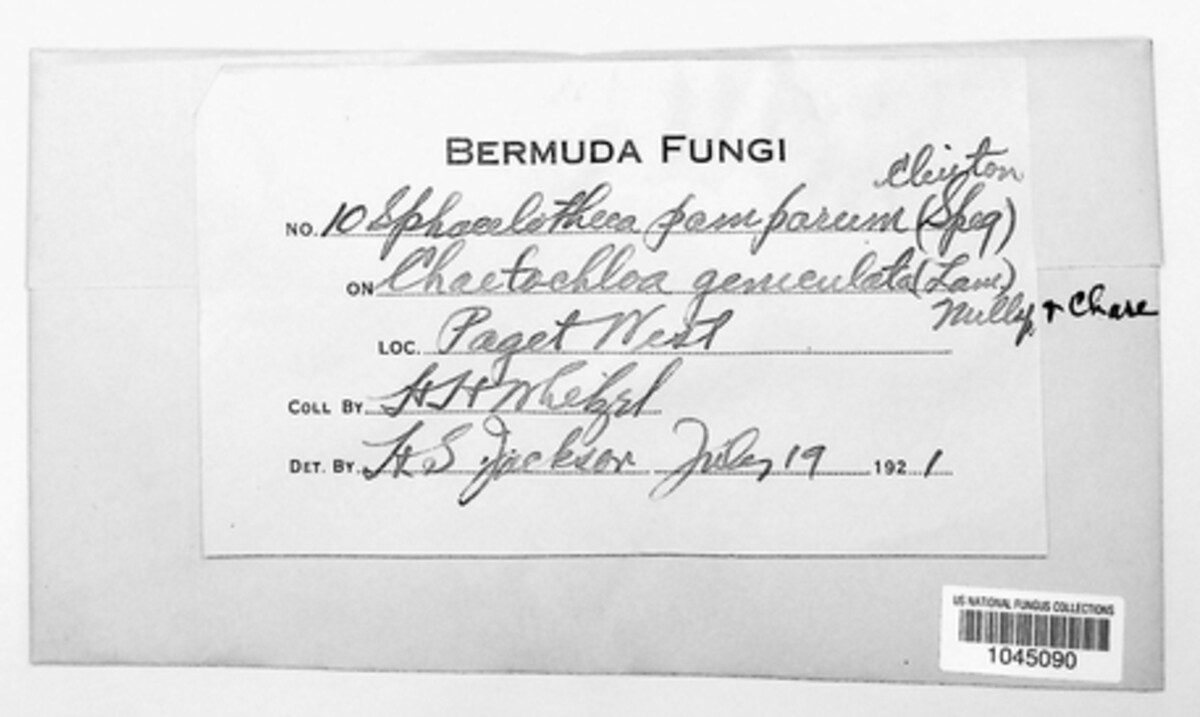 BERMUDA FUNGI
Clinton
NO. 10 Sphacelotheca pamparum (Speg)
ON Chaetochloa geniculata (Lam.)
Millsp. & Chase
LOC. Paget West
COLL BY. HH Whetzel
DET. BY. H S Jackson July 19 1921
US NATIONAL FUNGUS COLLECTIONS
1045090